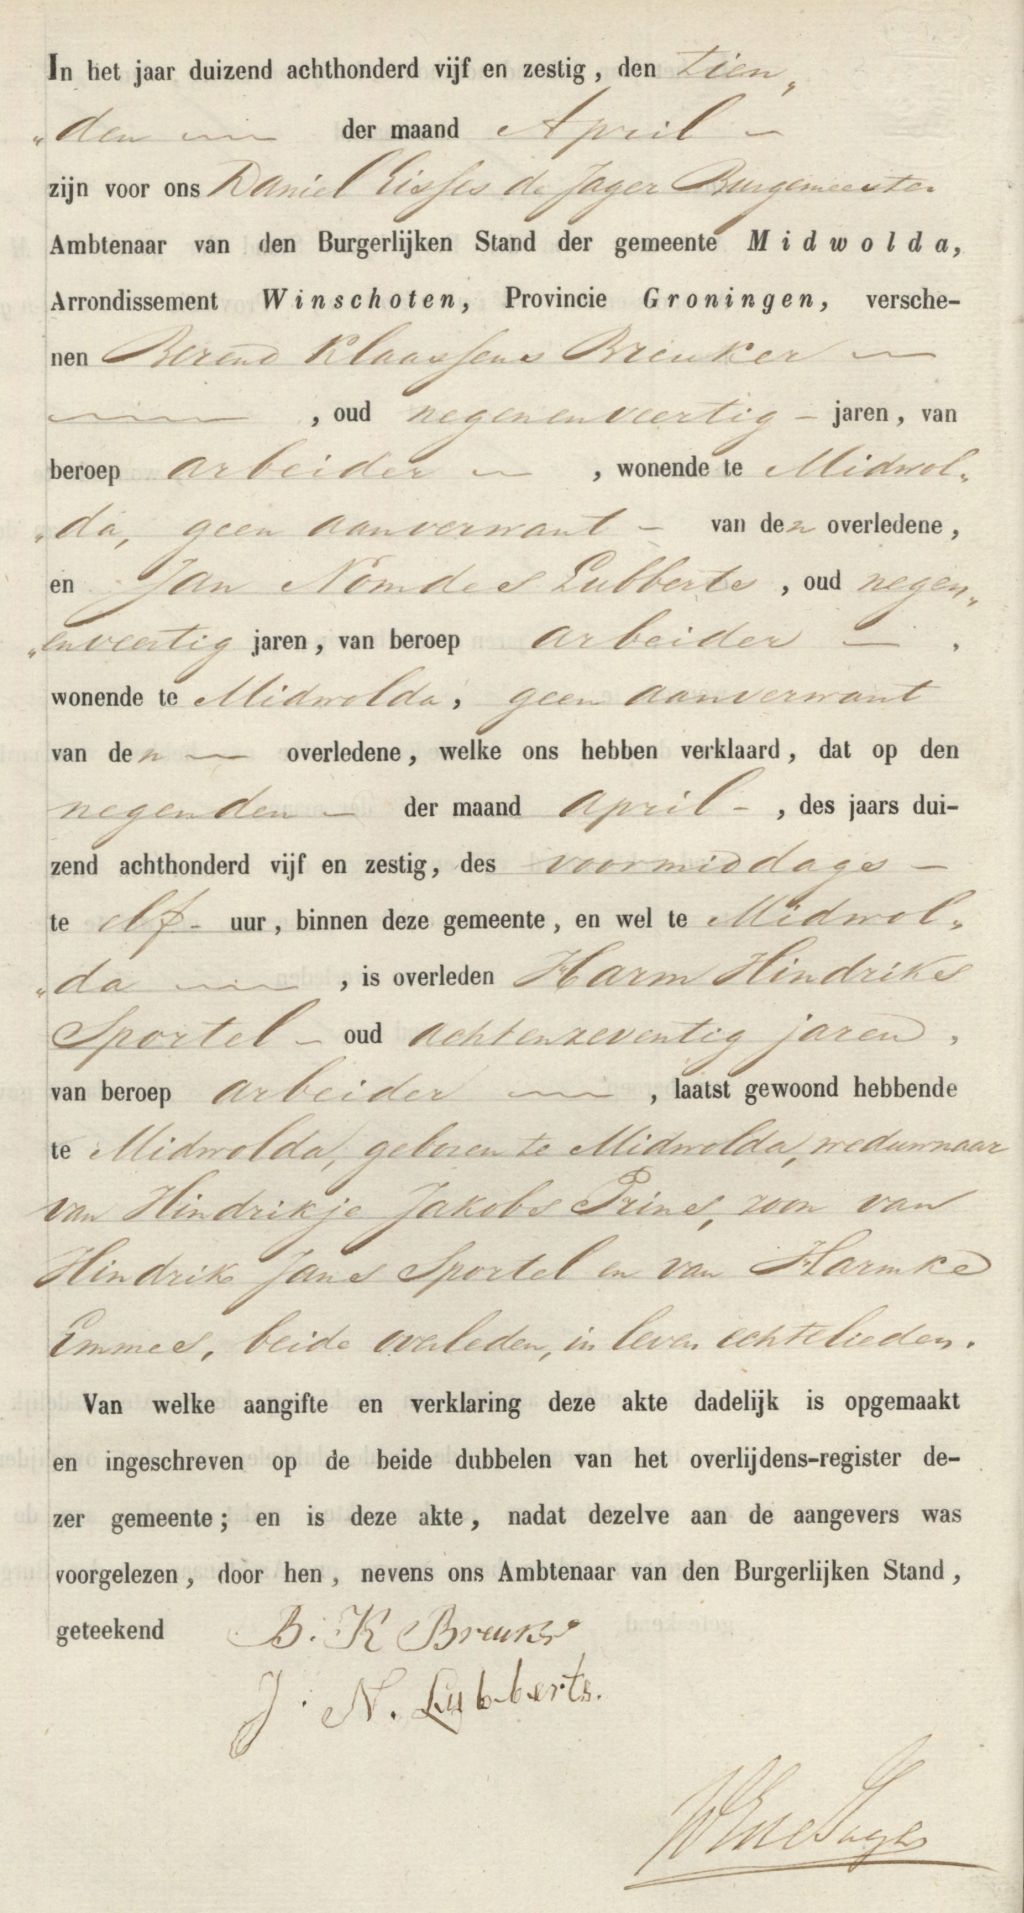 In het jaar duizend achthonderd vijf en zestig, den tien„
„den — der maand April —
zijn voor ons Daniel Eisses de Jager Burgemeester
Ambtenaar van den Burgerlijken Stand der gemeente Midwolda,
Arrondissement Winschoten, Provincie Groningen, versche-
nen Berend Klaassens Breuker —
— , oud negenenveertig – jaren, van
beroep arbeider — , wonende te Midwol„
„da, geen aanverwant – van den overledene,
en Jan Nomdes Lubberts, oud negen„
„enveertig jaren, van beroep arbeider — ,
wonende te Midwolda, geen aanverwant
van den — overledene, welke ons hebben verklaard, dat op den
negenden – der maand April – , des jaars dui-
zend achthonderd vijf en zestig, des voormiddags –
te elf – uur, binnen deze gemeente, en wel te Midwol„
„da — , is overleden Harm Hindriks
Sportel – oud achtenzeventig jaren,
van beroep arbeider — , laatst gewoond hebbende
te Midwolda, geboren te Midwolda, weduwnaar
van Hindrikje Jakobs Prins, zoon van
Hindrik Jans Sportel en van Harmke
Emmes, beide overleden, in leven echtelieden.
Van welke aangifte en verklaring deze akte dadelijk is opgemaakt
en ingeschreven op de beide dubbelen van het overlijdens-register de-
zer gemeente; en is deze akte, nadat dezelve aan de aangevers was
voorgelezen, door hen, nevens ons Ambtenaar van den Burgerlijken Stand,
geteekend B. K Breuker
J. N. Lubberts.
DE de Jager